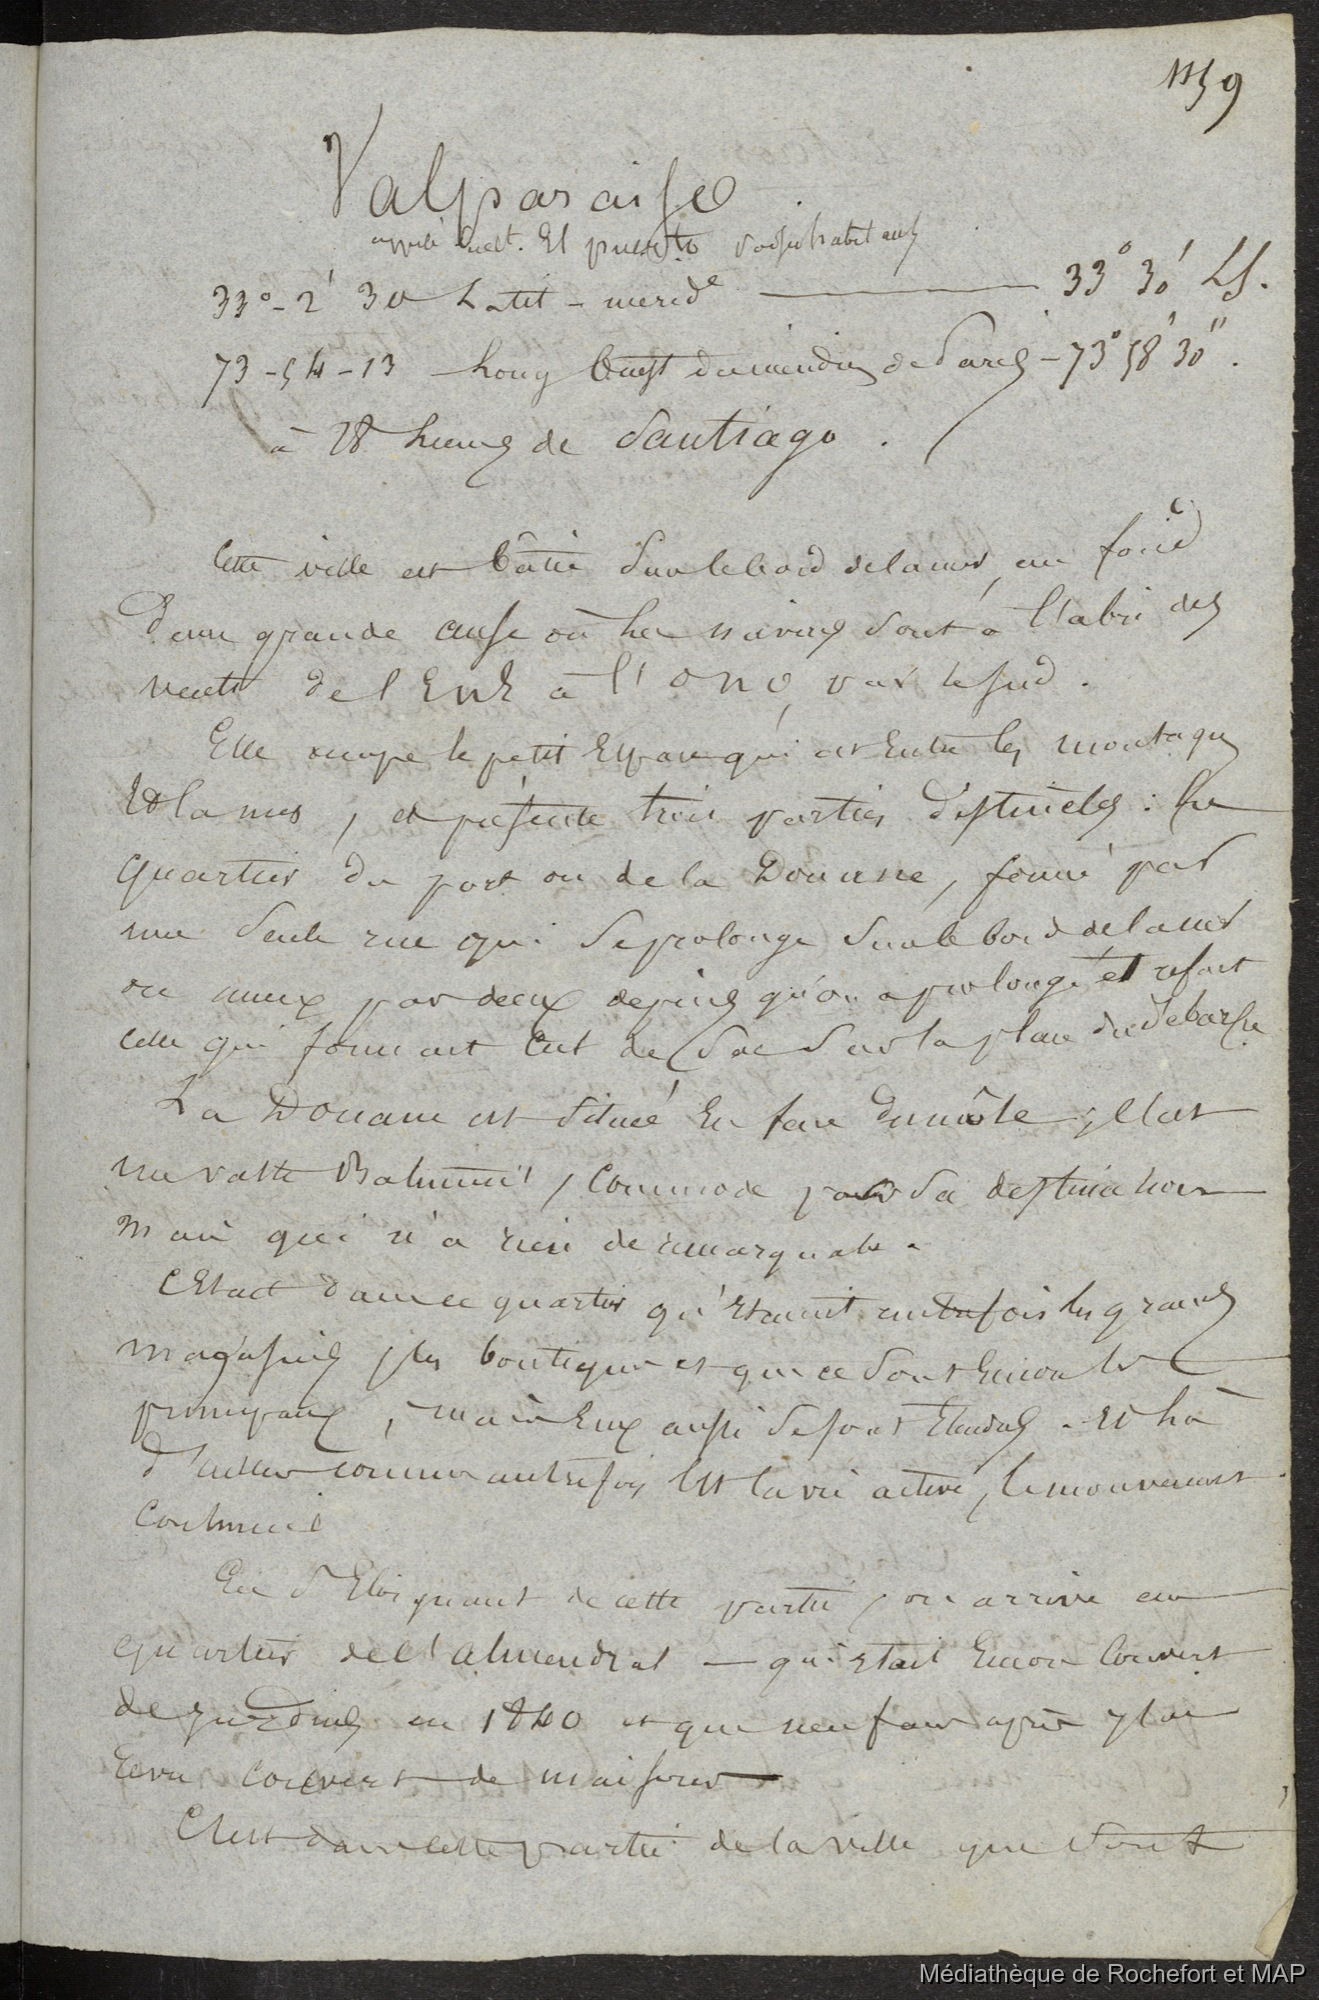 1159
Valparaiso
appelé El puerto par ses habitants
33° - 2' 30 Latit - merid.e 33° 30' LS.
73 - 54 - 13 Long Ouest du méridien de Paris - 73° 58' 30".
à 28 lieues de Santiago.
Cette ville est bâtie sur le bord de la mer, au fond
d'une grande anse où les navires sont à l'abri des
vents de l'ENE à l'ONO, par le sud.
Elle occupe le petit Espace qui est Entre les montagnes
Et la mer, et présente trois parties distinctes : Le
quartier du port ou de la Douane, formé par
une seule rue qui se prolonge sur le bord de la mer
ou mieux par deux depuis qu'on a prolongé et refait
celle qui formait cul de sac sur la place du Débarque
La Douane est située En face du môle, c'est
un vaste Batiment, commode pour sa destination
mais qui n'a rien de remarquable.
C'Etait dans ce quartier qu'Etaient autrefois les grands
magasins, les boutiques et que ce sont Encore les
principaux, mais Eux aussi se sont Etendus. Et là
d'ailleurs comme autrefois Est la vie active, le mouvement
continuel
En s'Eloignant de cette partie, on arrive au
quartier de l'Almendral — qui était Encore Couvert
de jardins en 1840 et que neuf ans après j'ai
revu couvert de maisons —
C'Est dans cette partie de la ville que sont
Médiathèque de Rochefort et MAP